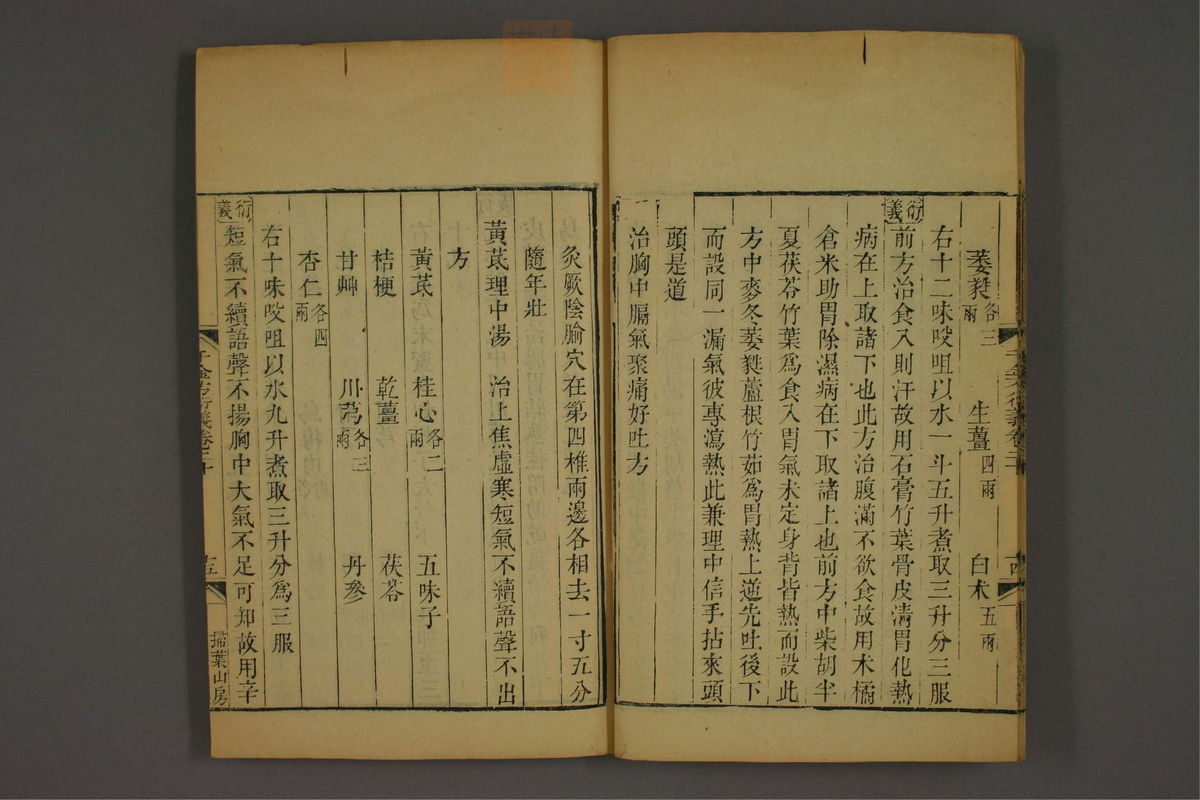 萎蕤各三兩　生薑四兩　白朮五兩
右十二味㕮咀以水一斗五升煮取三升分三服
衍義前方治食入則汗故用石膏竹葉骨皮清胃化熱
病在上取諸下也此方治腹滿不欲食故用朮橘
倉米助胃除濕病在下取諸上也前方中柴胡半
夏茯苓竹葉爲食入胃氣未定身背皆熱而設此
方中麥冬萎蕤蘆根竹茹爲胃熱上逆先吐後下
而設同一漏氣彼專瀉熱此兼理中信手拈來頭
頭是道
治胸中膈氣聚痛好吐方
灸厥陰腧穴在第四椎兩邊各相去一寸五分
隨年壯
黃芪理中湯　治上焦虛寒短氣不續語聲不出
方
黃芪　桂心各二兩　五味子
桔梗　乾薑　茯苓
甘艸　川芎各三兩　丹參
杏仁各四兩
右十味㕮咀以水九升煮取三升分爲三服
衍義短氣不續語聲不揚胸中大氣不足可知故用辛
千金方衍義卷二十
十五
掃葉山房